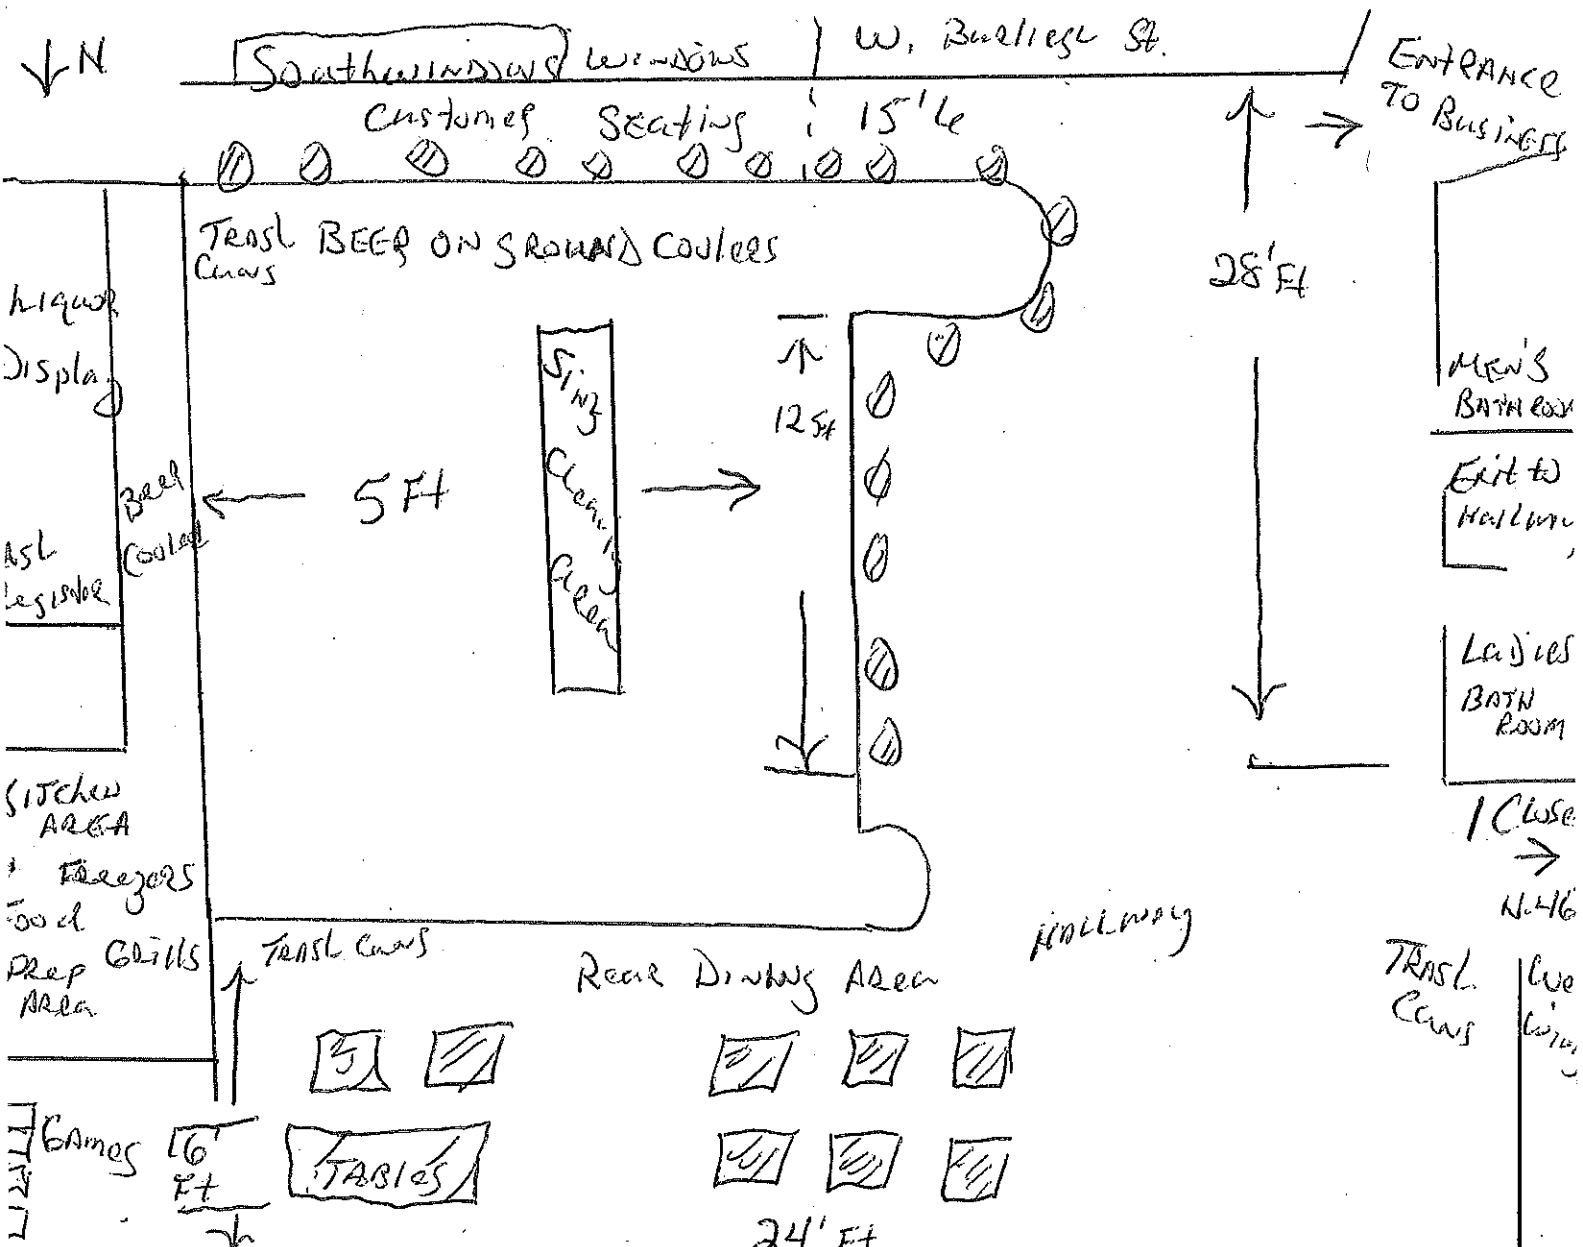 N
Southwindows windows
W. Burliegh St.
ENTRANCE
TO Business
Customer Seating
15'6
TRASh
Cans
BEER ON GROUND COOLERS
28' Ft
Liquor
Display
Sink
Cleaning
area
12 Ft
MEN'S
BATHROOM
Beer
Cooler
5 Ft
Exit to
Hallway
ash
Register
Ladies
BATH
ROOM
KITchen
AREA
1 Close
Freezers
Food
Prep
Area
Grills
TRASh Cans
Rear Dining Area
HALLWAY
N.46
TRASh
Cans
We
Win
GAmes
16'
Ft
TABles
24' Ft